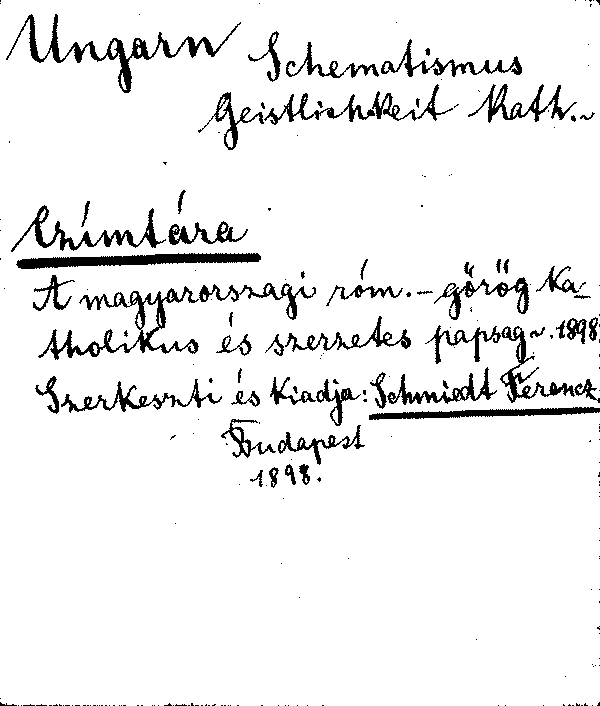 Ungarn Schematismus
Geistlichkeit Kath.~
Czímtára
A magyarorszagi róm.-görög Ka-
tholikus és szerzetes papsag~. 1898
Szerkeszti és kiadja: Schmiedt Ferencz
Budapest
1898.